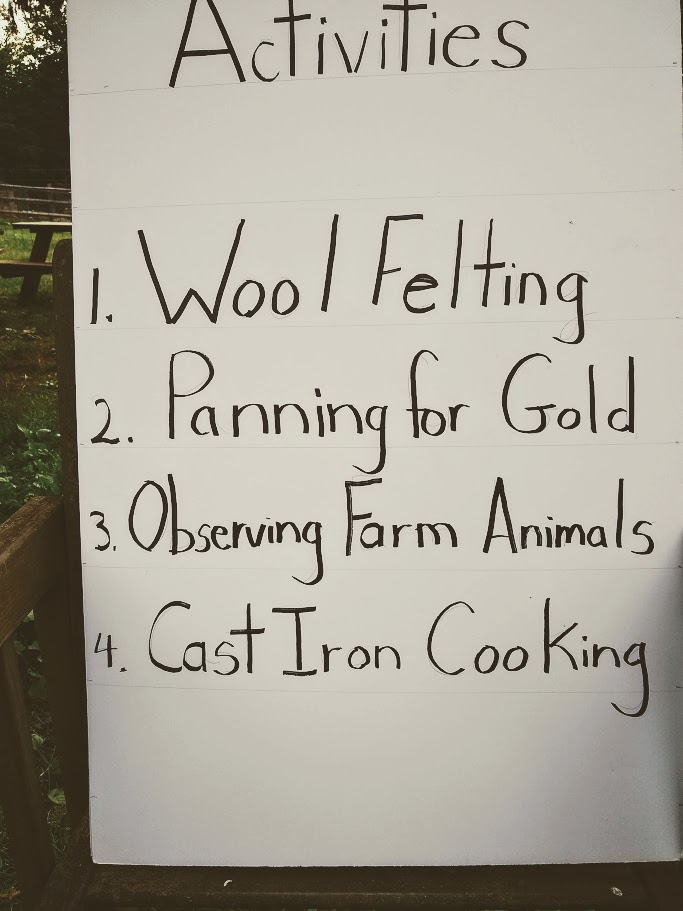 Activities
1. Wool Felting
2. Panning for Gold
3. Observing Farm Animals
4. Cast Iron Cooking